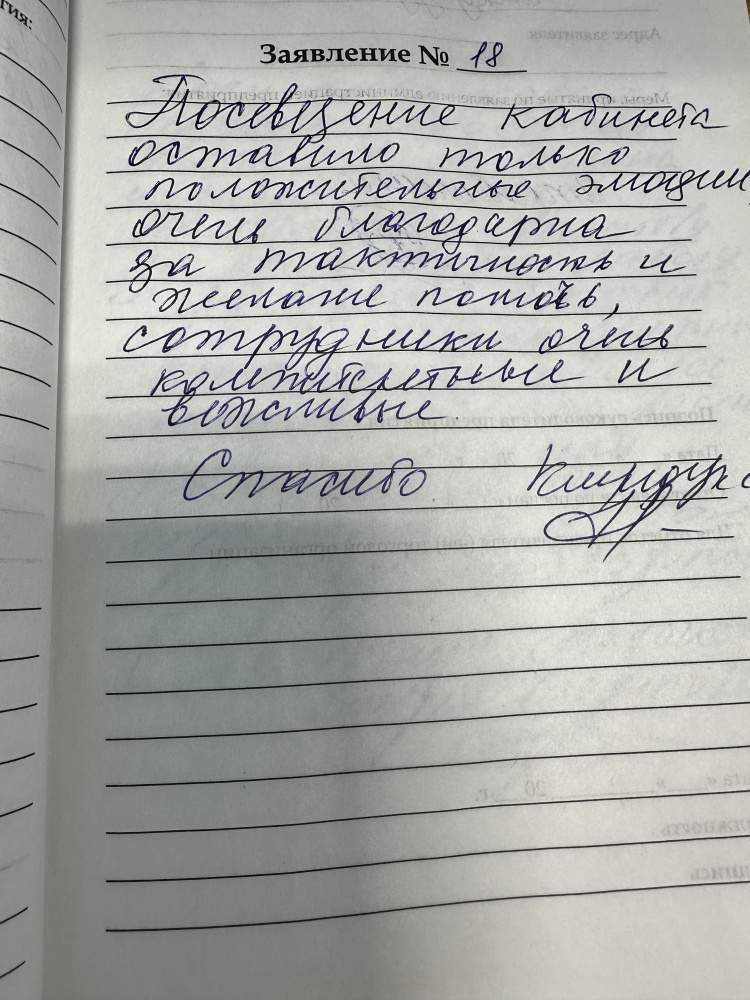 тия:
Заявление № 18
Посевщение кабинета
оставило только
положительные эмоции,
очень благодарна
за тактичность и
желание помочь,
сотрудники очень
компитетные и
вежливые.
Спасибо